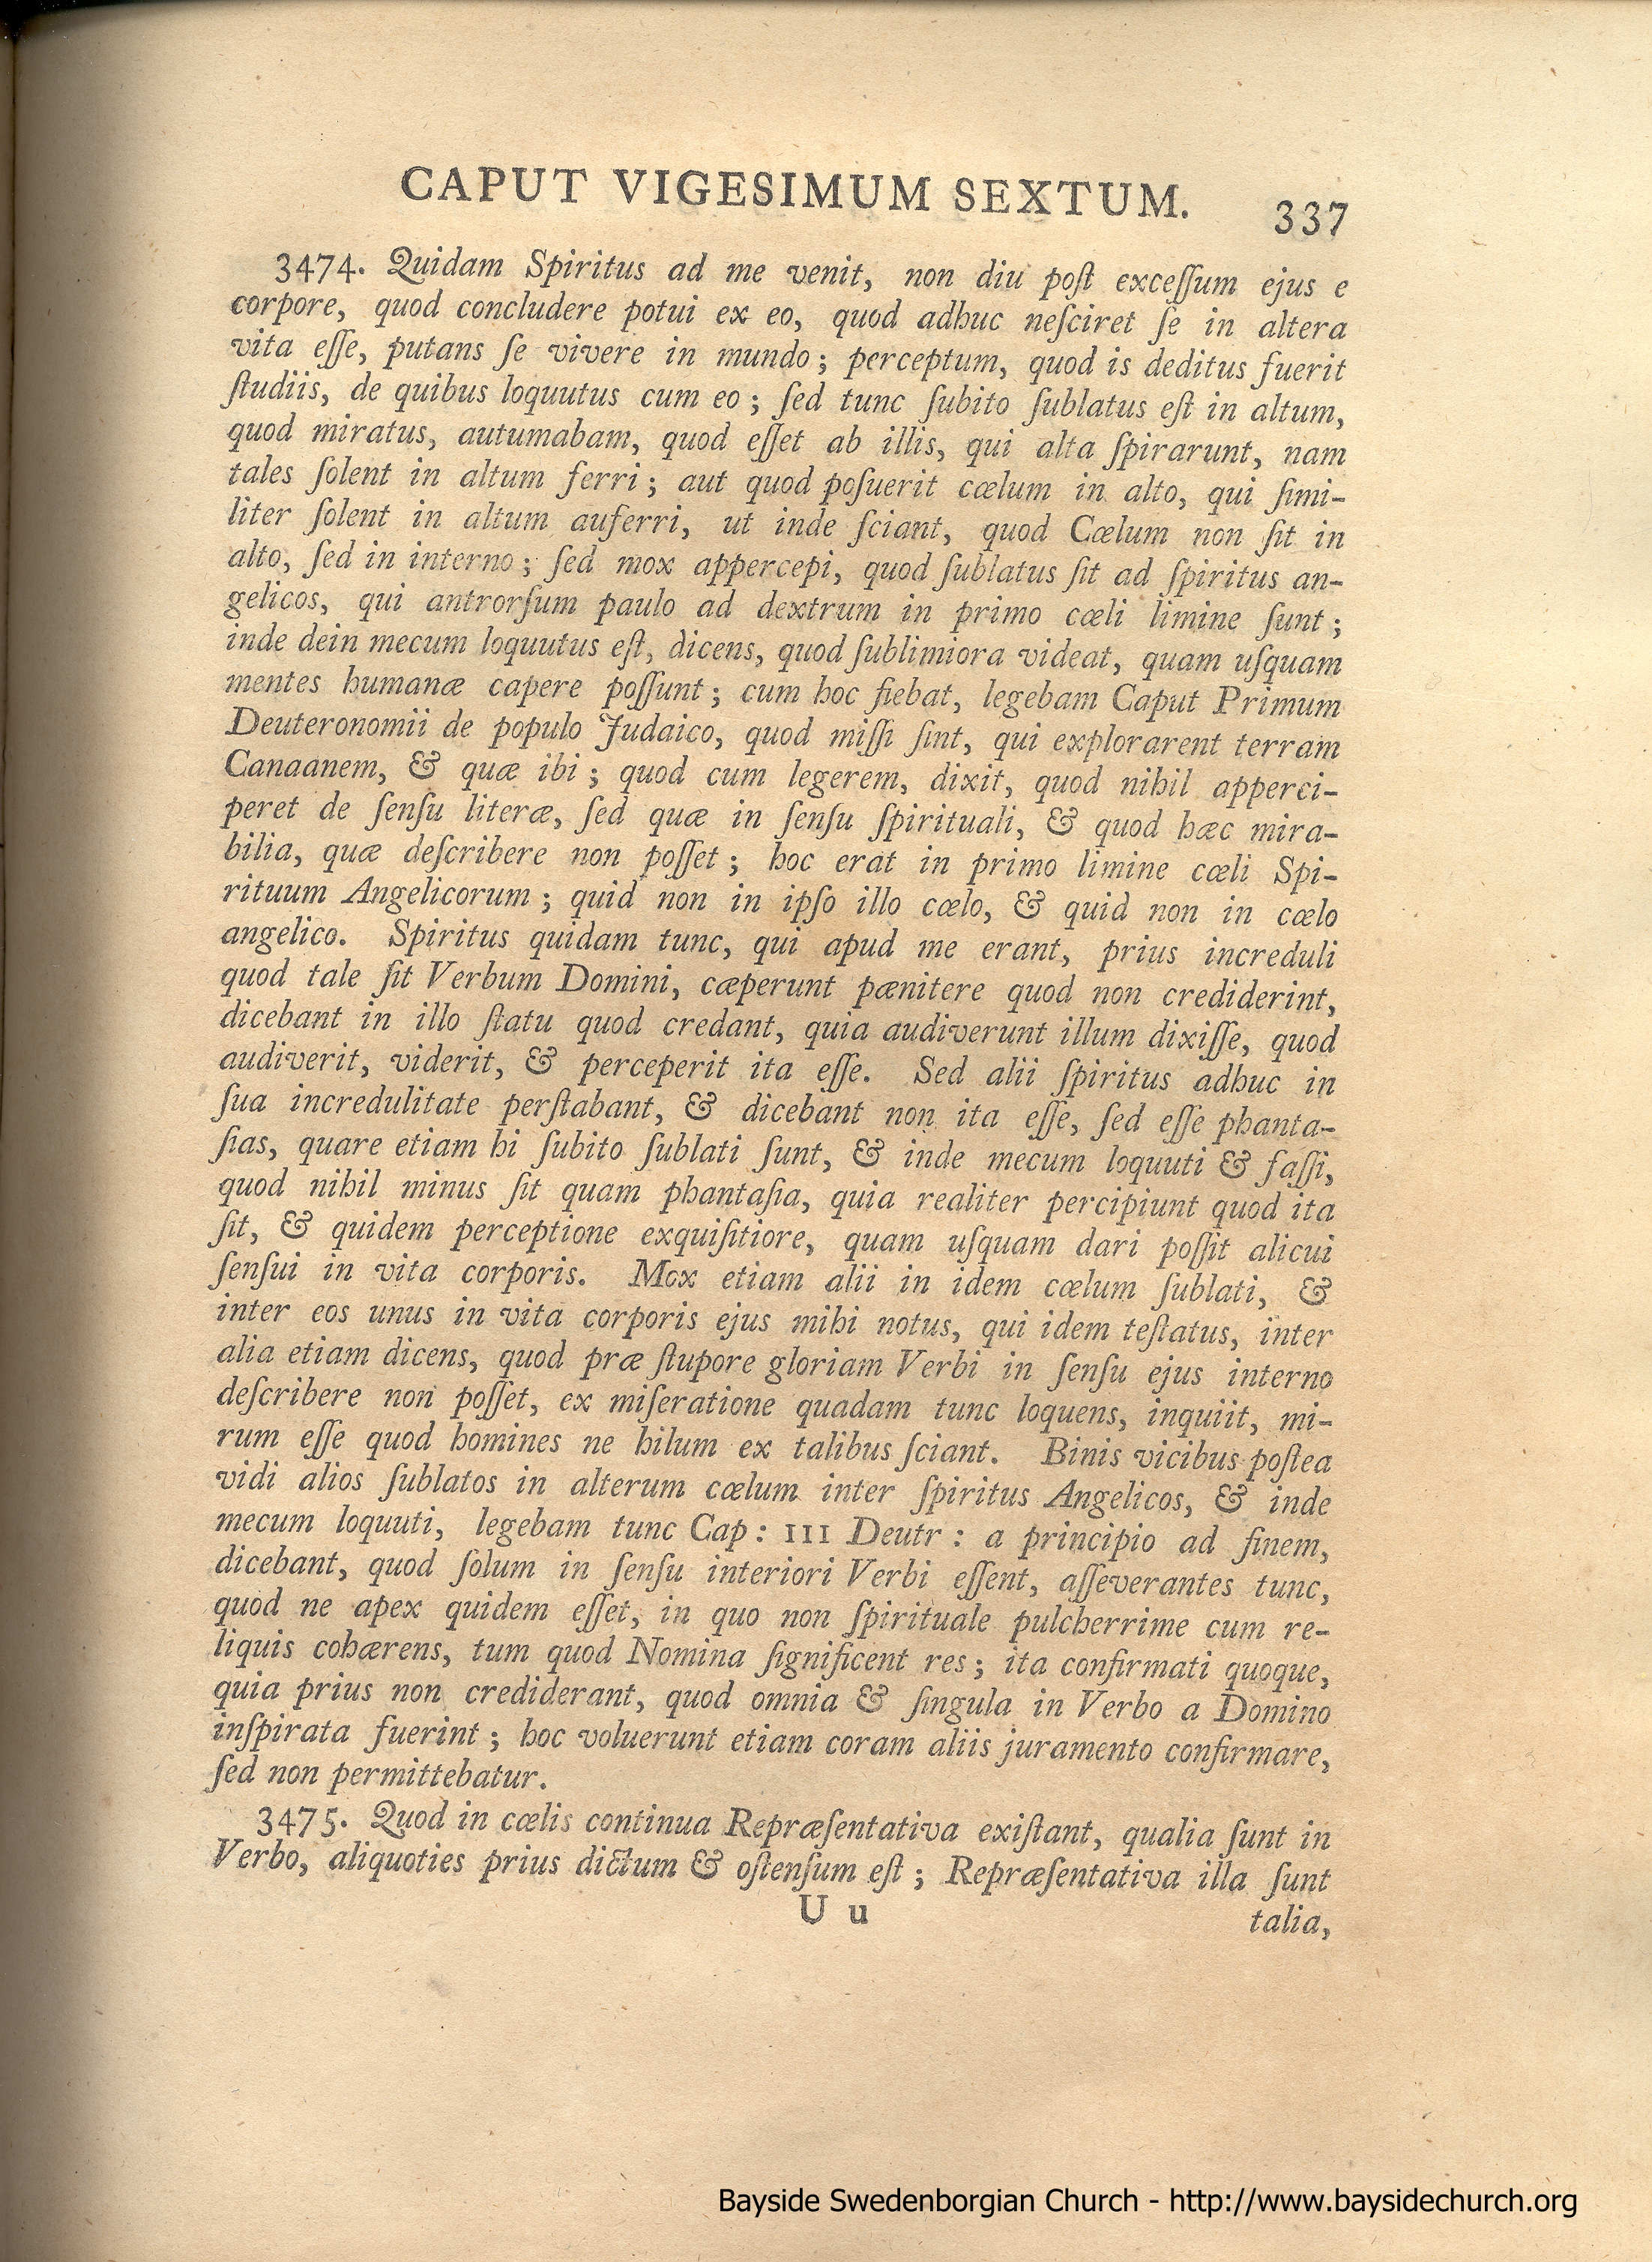 CAPUT VIGESIMUM SEXTUM. 337
3474. Quidam Spiritus ad me venit, non diu poſt exceſſum ejus e
corpore, quod concludere potui ex eo, quod adhuc neſciret ſe in altera
vita eſſe, putans ſe vivere in mundo; perceptum, quod is deditus fuerit
ſtudiis, de quibus loquutus cum eo; ſed tunc ſubito ſublatus eſt in altum,
quod miratus, autumabam, quod eſſet ab illis, qui alta ſpirarunt, nam
tales ſolent in altum ferri; aut quod poſuerit cœlum in alto, qui ſimi-
liter ſolent in altum auferri, ut inde ſciant, quod Cœlum non ſit in
alto, ſed in interno; ſed mox appercepi, quod ſublatus ſit ad ſpiritus an-
gelicos, qui antrorſum paulo ad dextrum in primo cœli limine ſunt;
inde dein mecum loquutus eſt, dicens, quod ſublimiora videat, quam uſquam
mentes humanæ capere poſſunt; cum hoc fiebat, legebam Caput Primum
Deuteronomii de populo Judaico, quod miſſi ſint, qui explorarent terram
Canaanem, & quæ ibi; quod cum legerem, dixit, quod nihil apperci-
peret de ſenſu literæ, ſed quæ in ſenſu ſpirituali, & quod hæc mira-
bilia, quæ deſcribere non poſſet; hoc erat in primo limine cœli Spi-
rituum Angelicorum; quid non in ipſo illo cœlo, & quid non in cœlo
angelico. Spiritus quidam tunc, qui apud me erant, prius increduli
quod tale ſit Verbum Domini, cæperunt pænitere quod non crediderint,
dicebant in illo ſtatu quod credant, quia audiverunt illum dixiſſe, quod
audiverit, viderit, & perceperit ita eſſe. Sed alii ſpiritus adhuc in
ſua incredulitate perſtabant, & dicebant non ita eſſe, ſed eſſe phanta-
ſias, quare etiam hi ſubito ſublati ſunt, & inde mecum loquuti & faſſi,
quod nihil minus ſit quam phantaſia, quia realiter percipiunt quod ita
ſit, & quidem perceptione exquiſitiore, quam uſquam dari poſſit alicui
ſenſui in vita corporis. Mox etiam alii in idem cœlum ſublati, &
inter eos unus in vita corporis ejus mihi notus, qui idem teſtatus, inter
alia etiam dicens, quod præ ſtupore gloriam Verbi in ſenſu ejus interno
deſcribere non poſſet, ex miſeratione quadam tunc loquens, inquiit, mi-
rum eſſe quod homines ne hilum ex talibus ſciant. Binis vicibus poſtea
vidi alios ſublatos in alterum cœlum inter ſpiritus Angelicos, & inde
mecum loquuti, legebam tunc Cap: III Deutr: a principio ad finem,
dicebant, quod ſolum in ſenſu interiori Verbi eſſent, aſſeverantes tunc,
quod ne apex quidem eſſet, in quo non ſpirituale pulcherrime cum re-
liquis cohærens, tum quod Nomina ſignificent res; ita confirmati quoque,
quia prius non crediderant, quod omnia & ſingula in Verbo a Domino
inſpirata fuerint; hoc voluerunt etiam coram aliis juramento confirmare,
ſed non permittebatur.
3475. Quod in cœlis continua Repræſentativa exiſtant, qualia ſunt in
Verbo, aliquoties prius dictum & oſtenſum eſt; Repræſentativa illa ſunt
U u talia,
Bayside Swedenborgian Church - http://www.baysidechurch.org